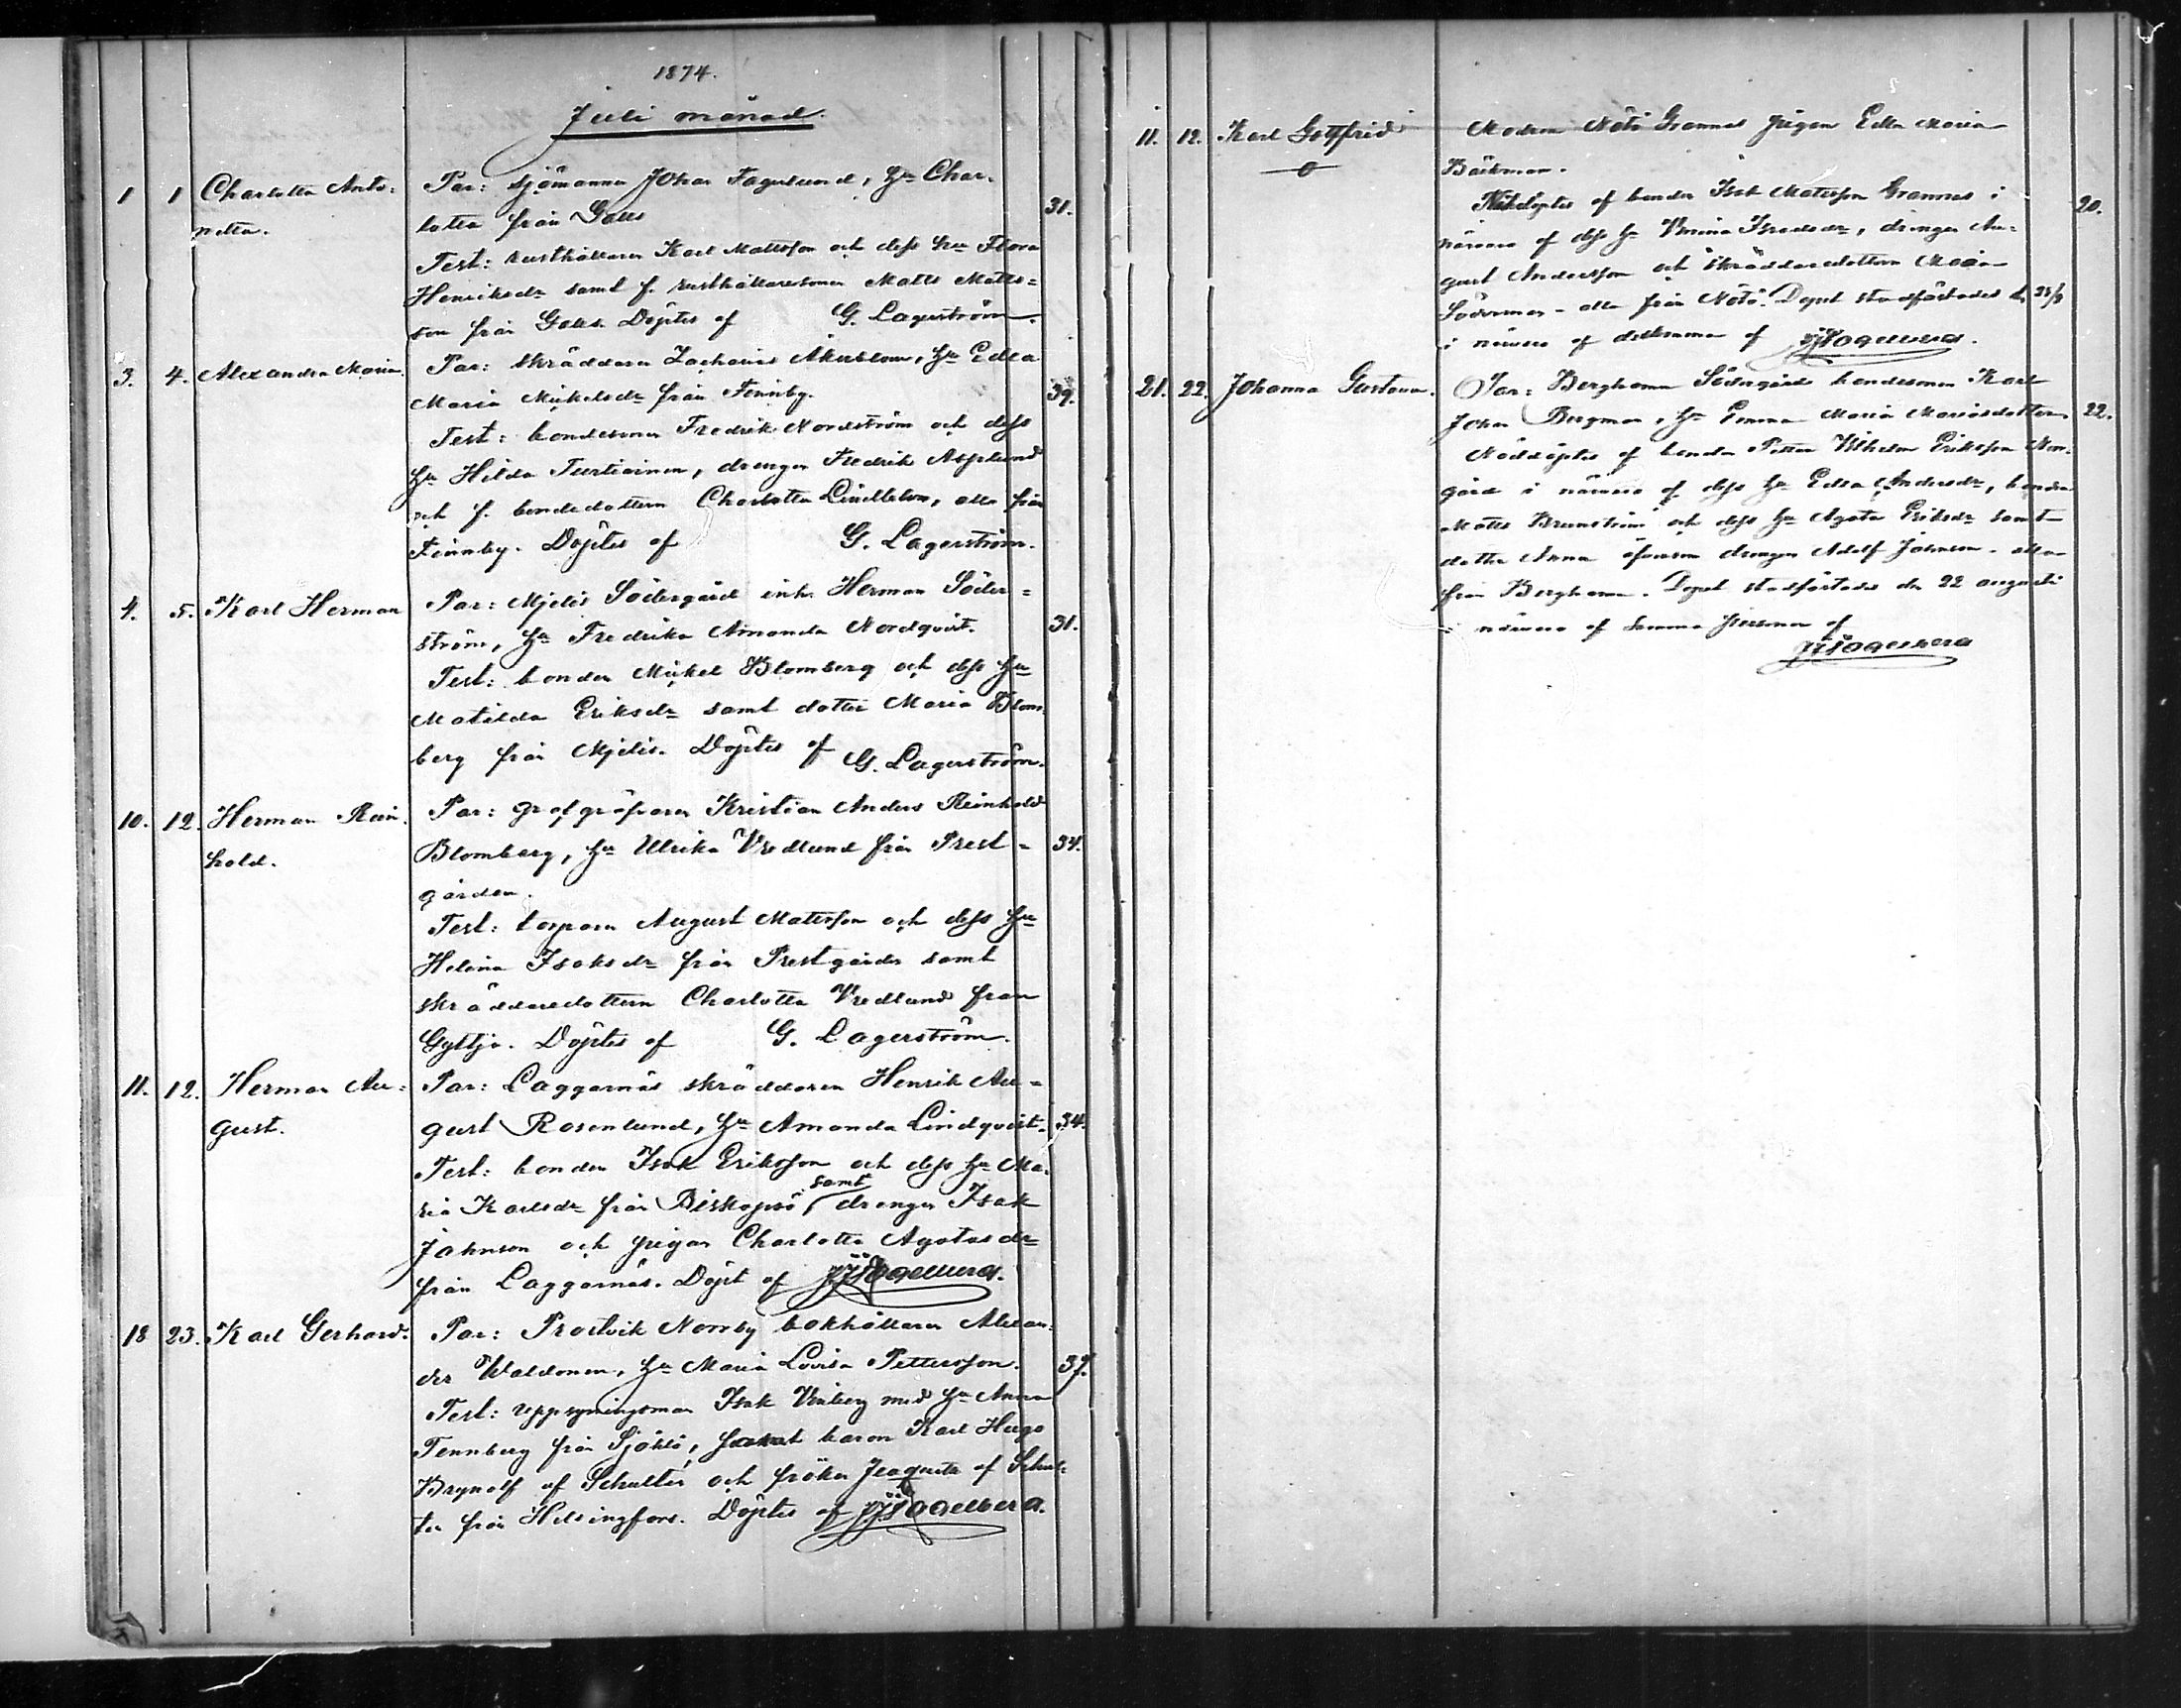 1874.
Juli månad.
1 1 Charlotta Anto-
netta.
Par: sjömannen Johan Fagerlund, hu Char-
lotta från Galts 31.
Test: rusthållaren Karl Mattsson och dess hu Flora
Henriksdr samt f. rusthållaresonen Matts Matts-
son från Galts. Döptes af G. Lagerström.
3. 4. Alexandra Maria.
Par: skräddaren Zacharias Åkerblom, hu Edla
Maria Mickelsdr från Finnby. 39.
Test: bondesonen Fredrik Nordström och dess
hu Hilda, drengen Fredrik Asplund
och f. bondedottern Charlotta Lindblom, alla från
Finnby. Döptes af G. Lagerström.
4. 5. Karl Herman
Par: Mjelis Södergård inh. Herman Söder-
ström, hu Fredrika Amanda Nordqvist. 31.
Test: bonden Mickel Blomberg och dess hu
Matilda Eriksdr samt dotter Maria Blom-
berg från Mjelis. Döptes af G. Lagerström.
10. 12. Herman Rein-
hold.
Par: grafgräfvaren Kristian Anders Reinhold
Blomberg, hu Ulrika Vredlund från Prest- 34.
gården.
Test: torparen August Matsson och dess hu
Helena Isaksdr från Prestgården samt
skräddaredottern Charlotta Vredlund från
Gyttja. Döptes af G. Lagerström.
11. 12. Herman Au-
gust.
Par: Laggarnäs skräddaren Henrik Au-
gust Rosenlund, hu Amanda Lindqvist. 34.
Test: bonden Isak Eriksson och dess hu Ma-
ria Karlsdr från Biskopsö, samt drengen Isak
Johnson och pigan Charlotta Agatasdr
från Laggarnäs. Döpt af
18 23. Karl Gerhard.
Par: Prostvik Norrby bokhållaren Alexan-
der Waldonen, hu Maria Lovisa Pettersson. 37.
Test: uppsyningsman Isak Vinberg med hu Anna
Tennberg från Sjöklö, samt baron Karl Hugo
Brynolf af Schultén och fröken af Schul-
tén från Helsingfors. Döptes af
11. 12. Karl Gottfrid
Modren Nötö Grannas pigan Edla Maria
Bäckman.
Nöddöptes af bonden Isak Matsson Grannas i 20.
närvaro af dess hu Isaksdr, drengen Au-
gust Andersson och skräddaredottern Maria
Söderman - alla från Nötö. Dopet stadfästades d.
i närvaro af desamma af
21. 22. Johanna Gustava.
Par: Berghamn Södergård bondesonen Karl
Johan Bergman, hu Emma Maria Mariasdotter. 22.
Nöddöptes af bonden Petter Vilhelm Eriksson Norr-
gård i närvaro af dess hu Edla Andersdr, bonden
Matts Brunström och dess hu Agata Eriksdr samt
dotter Anna äfvensom drengen Adolf Johnson - alla
från Berghamn. Dopet stadfästades den 22 augusti
i närvaro af samma personer af